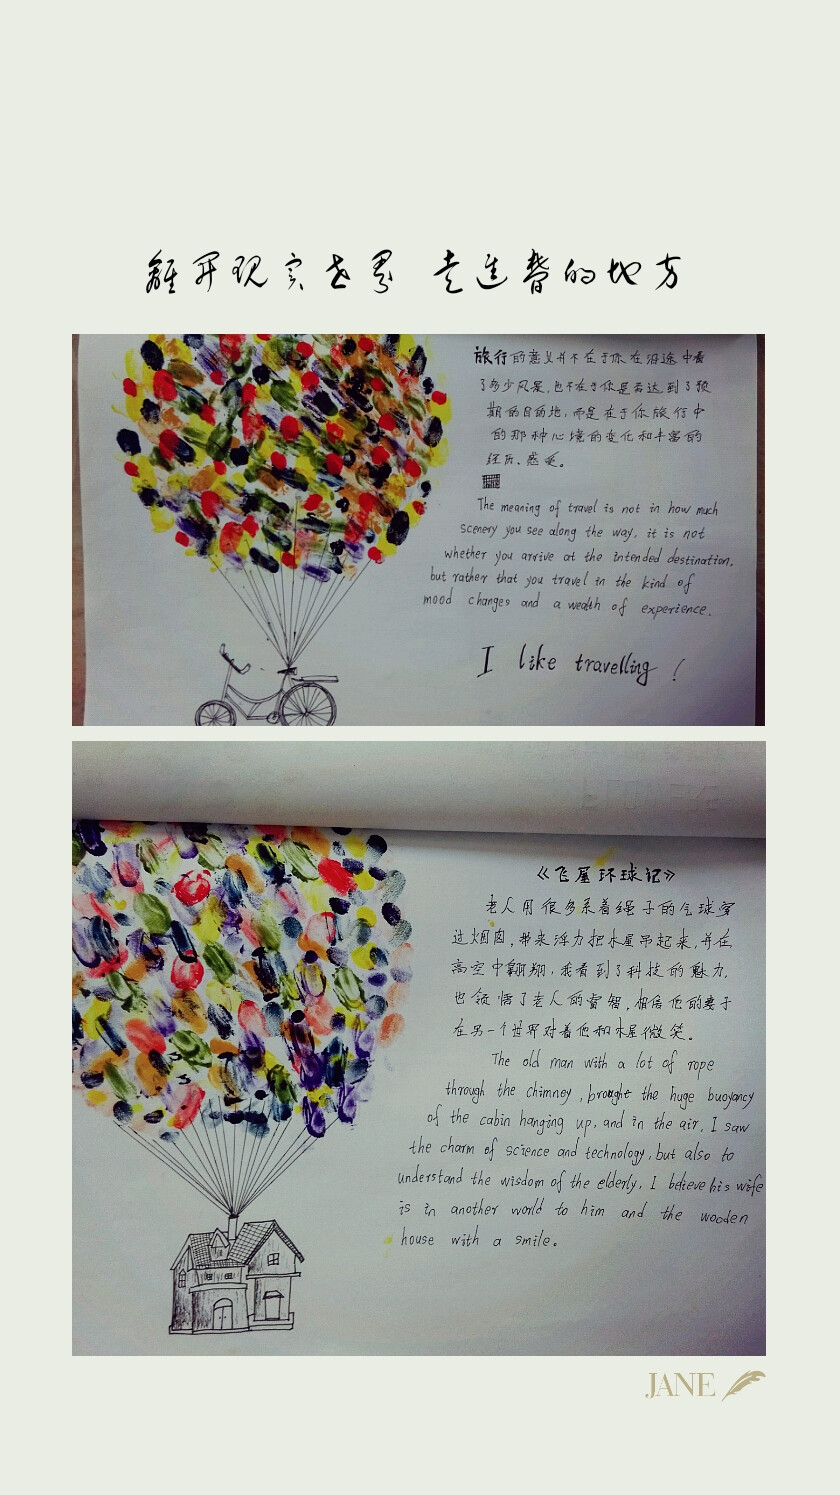 離开现实世界 走进梦的地方
旅行的意义并不在于你在沿途中看
了多少风景,也不在于你是否达到了预
期的目的地,而是在于你旅行中
的那种心境的变化和丰富的
经历、感受。
The meaning of travel is not in how much
scenery you see along the way, it is not
whether you arrive at the intended destination,
but rather that you travel in the kind of
mood changes and a wealth of experience.
I like travelling !
《飞屋环球记》
老人用很多系着绳子的气球穿
过烟囱,带来浮力把木屋吊起来,并在
高空中翱翔,我看到了科技的魅力,
也领悟了老人的睿智,相信他的妻子
在另一个世界对着他和木屋微笑。
The old man with a lot of rope
through the chimney , brought the huge buoyancy
of the cabin hanging up, and in the air, I saw
the charm of science and technology, but also to
understand the wisdom of the elderly, I believe his wife
is in another world to him and the wooden
house with a smile。
JANE